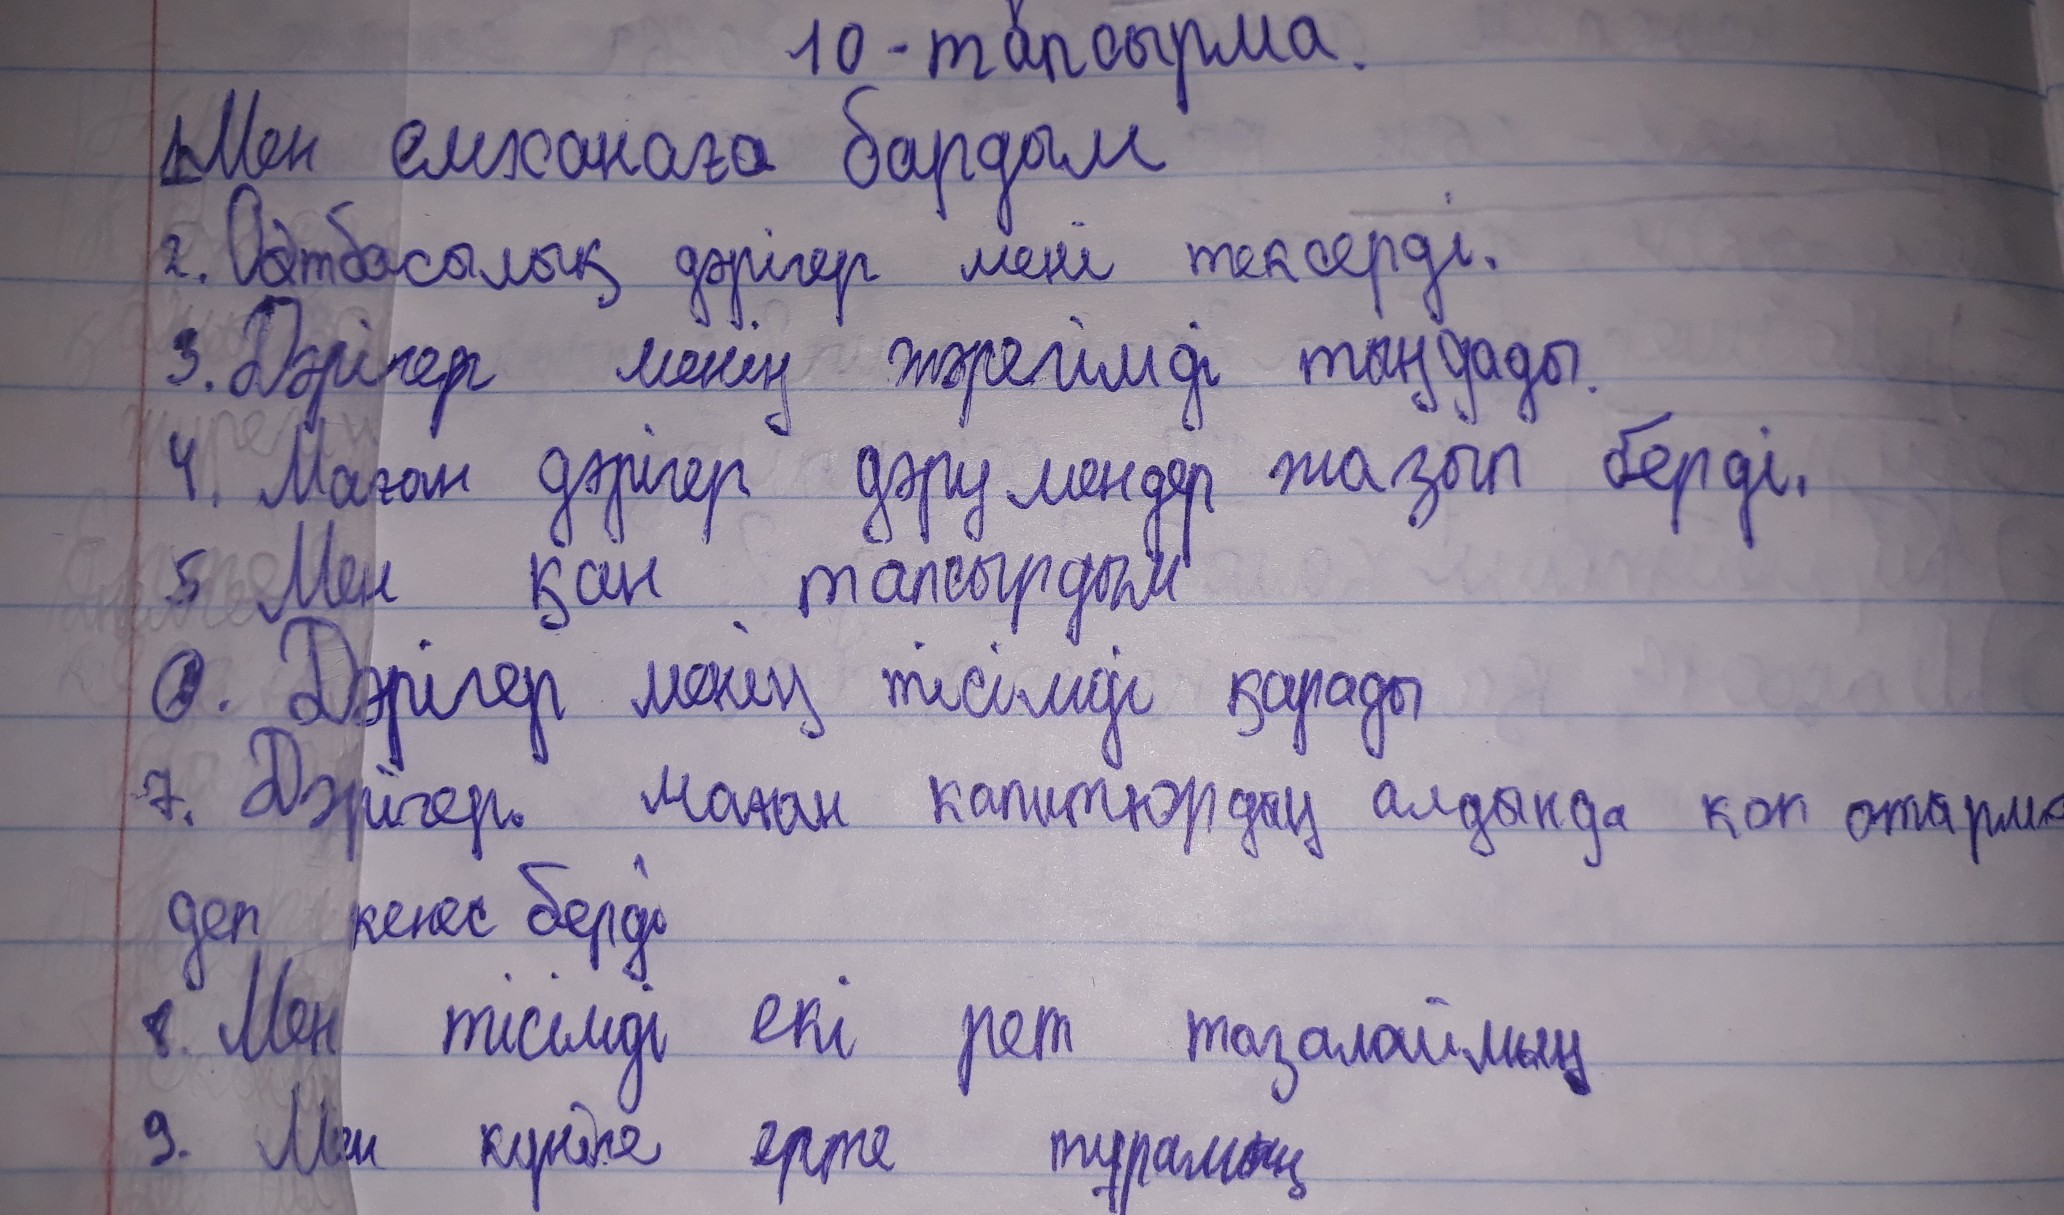 10-тапсырма.
1. Мен емханаға бардым
2. Отбасылық дәрігер мені тексерді.
3. Дәрігер менің жәрегімді тыңдады.
4. Маған дәрігер дәрумендер жазып берді.
5 Мен қан тапсырдым
6. Дәрігер менің тісімді қарады
7. Дәрігер. маған капитюрдың алдында коп отырма
деп кенес берді
8. Мен тісімді екі рет тазалаймың
9. Мен күнде ерте тұрамың